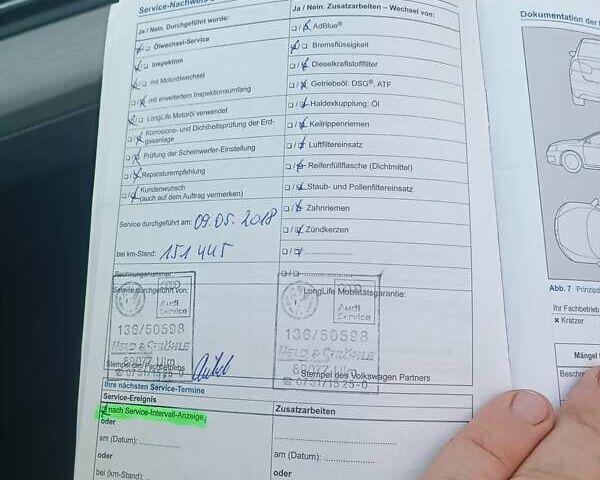 Service-Nachweis
Ja / Nein. Durchgeführt wurde:
Ölwechsel-Service
Inspektion
mit Motorölwechsel
mit erweitertem Inspektionsumfang
LongLife Motoröl verwendet
Korrosions- und Dichtheitsprüfung der Erd-
gasanlage
Prüfung der Scheinwerfer-Einstellung
Reparaturempfehlung
Kundenwunsch
(auch auf dem Auftrag vermerken)
Service durchgeführt am: 09.05.2018
bei km-Stand: 151 445
Rechnungsnummer:
Service durchgeführt von:
Audi
Service
136/50598
HELD & STRÖHLE
89077 Ulm
Stempel des Fachbetriebs
Ihre nächsten Service-Termine
Service-Ereignis
nach Service-Intervall-Anzeige
oder
am (Datum):
oder
bei (km-Stand):
Ja / Nein. Zusatzarbeiten – Wechsel von:
AdBlue®
Bremsflüssigkeit
Dieselkraftstofffilter
Getriebeöl: DSG®, ATF
Haldexkupplung: Öl
Keilrippenriemen
Luftfiltereinsatz
Reifenfüllflasche (Dichtmittel)
Staub- und Pollenfiltereinsatz
Zahnriemen
Zündkerzen
LongLife Mobilitätsgarantie:
Audi
Service
136/50598
HELD & STRÖHLE
89077 Ulm
Stempel des Volkswagen Partners
Zusatzarbeiten
am (Datum):
oder
Dokumentation der
Abb. 7 Prinzipd
Ihr Fachbetrieb
× Kratzer
Mängel
Beschre